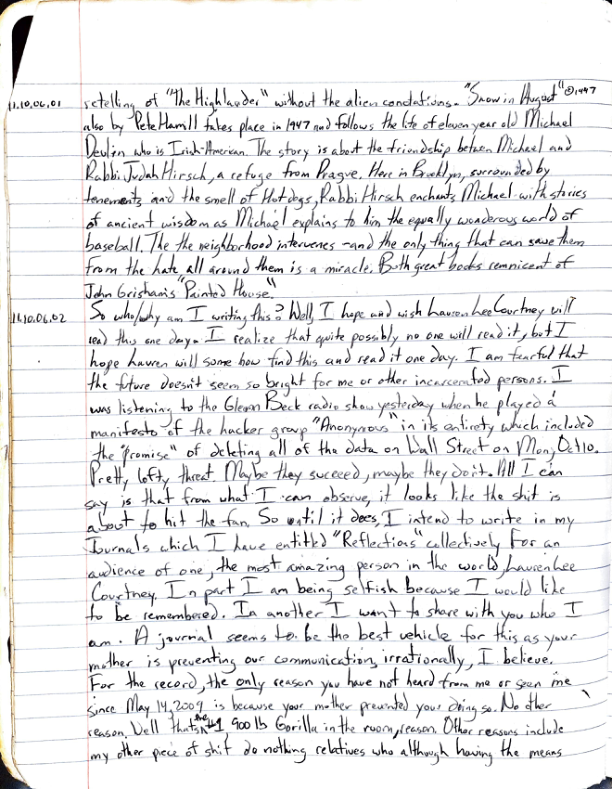 11.10.06.01 retelling of "The Highlander" without the alien conotations. "Snow in August" ©1997
also by Pete Hamill takes place in 1947 and follows the life of eleven year old Michael
Devlin who is Irish-American. The story is about the friendship between Michael and
Rabbi Judah Hirsch, a refuge from Prague. Here in Brooklyn, surrounded by
tenements and the smell of Hotdogs, Rabbi Hirsch enchants Michael with stories
of ancient wisdom as Michael explains to him the equally wonderous world of
baseball. The the neighborhood intervenes - and the only thing that can save them
from the hate all around them is a miracle. Both great books reminicent of
John Grisham's "Painted House."
11.10.06.02 So who/why am I writing this? Well, I hope and wish Lauren Lee Courtney will
read this one day. I realize that quite possibly no one will read it, but I
hope Lauren will some how find this and read it one day. I am fearful that
the future doesn't seem so bright for me or other incarcerated persons. I
was listening to the Glenn Beck radio show yesterday when he played a
manifesto of the hacker group "Anonymous" in its entirety which included
the "promise" of deleting all of the data on Wall Street on Mon, Oct 10.
Pretty lofty threat. Maybe they succeed, maybe they don't. All I can
say is that from what I can observe, it looks like the shit is
about to hit the fan. So until it does, I intend to write in my
Journals which I have entitled "Reflections" collectively for an
audience of one, the most amazing person in the world, Lauren Lee
Courtney. In part I am being selfish because I would like
to be remembered. In another I want to share with you who I
am. A journal seems to be the best vehicle for this as your
mother is preventing our communication, irrationally, I believe.
For the record, the only reason you have not heard from me or seen me
since May 14, 2009 is because your mother prevented your doing so. No other
reason. Well that's the #1 900 lb Gorilla in the room, reason. Other reasons include
my other piece of shit do nothing relatives who although having the means